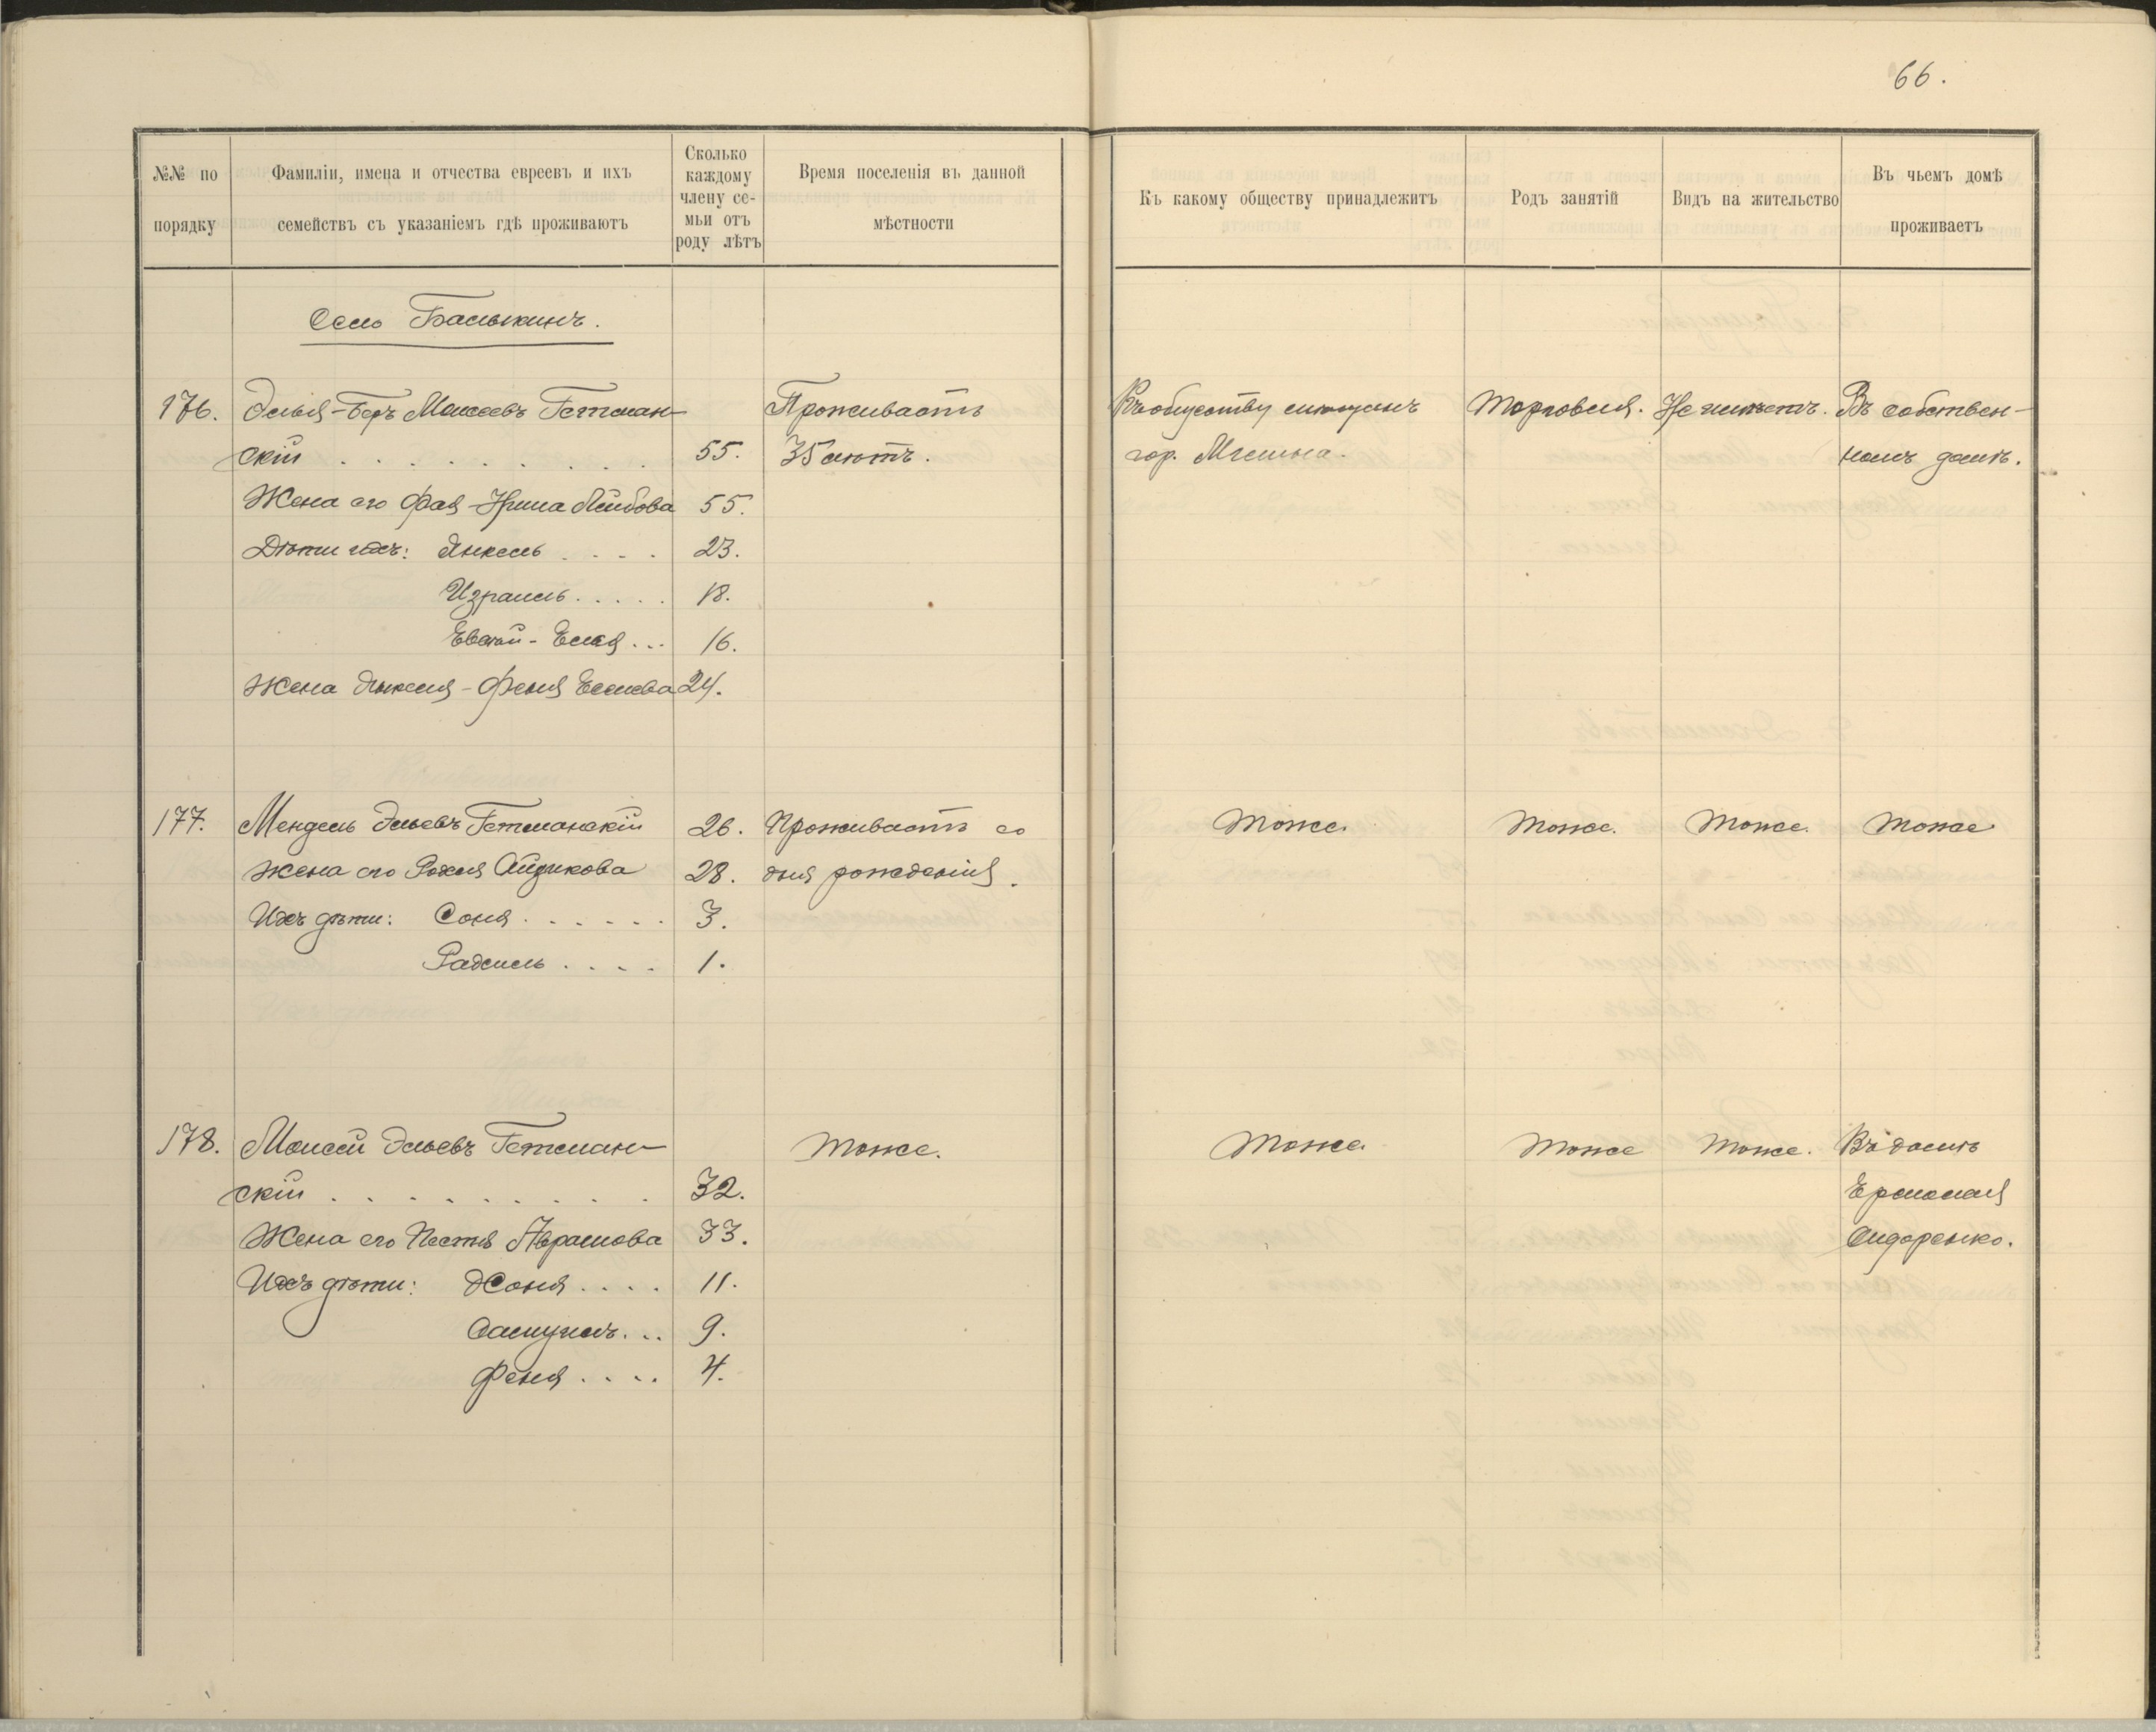 66.
№№ по порядку
Фамиліи, имена и отчества евреевъ и ихъ
семействъ съ указаніемъ гдѣ проживаютъ
Сколько
каждому
члену се-
мьи отъ
роду лѣтъ
Время поселенія въ данной
мѣстности
Къ какому обществу принадлежитъ
Родъ занятій
Видъ на жительство
Въ чьемъ домѣ
проживаетъ
Село Балыкинъ.
176. Элья-Беръ Моисеевъ Гетман- Проживаетъ Къ обществу мѣщанъ Торговля. Не имѣетъ. Въ собствен-
скій 55. 35 лѣтъ. гор. Мглина. номъ домѣ.
Жена его Фая- Лейбова 55.
Дѣти ихъ: Янкель 23.
Израиль 18.
16.
Жена Янкеля - Феня 24.
177. Мендель Эльевъ Гетманскій 26. Проживаетъ со Тоже. Тоже. Тоже. Тоже
Жена его Айзикова 28. дня рожденія.
Ихъ дѣти: Соня 3.
1.
178. Моисей Эльевъ Гетман- Тоже. Тоже Тоже Тоже. Въ домѣ
скій 32. Ермолая
Жена его Песя Абрамова 33. Сидоренко.
Ихъ дѣти: Соня 11.
Самуилъ 9.
Феня 4.